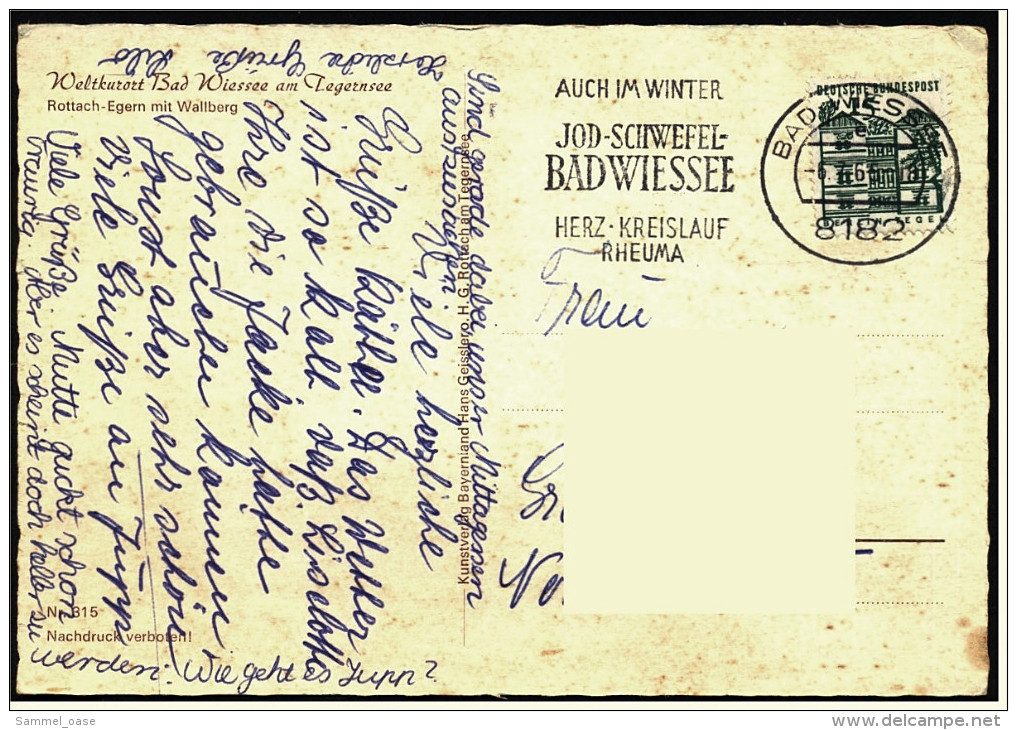 Weltkurort Bad Wiessee am Tegernsee
Rottach-Egern mit Wallberg
Herzliche Grüße
Sind gerade dabei unser Mittagessen
auszusuchen
Viele herzliche
Grüße Käthe. Das Wetter
ist so kalt daß Liselotte
Ihre die Jacke hätte
gebrauchen können
Sonst aber sehr schön
Viele Grüße an Jupp
Viele Grüße Mutte guckt schon
traurig. Aber es scheint doch heller zu
werden. Wie geht es Jupp?
Nr. 315
Nachdruck verboten!
Kunstverlag Bayernland Hans Geissler o.H.G. Rottach am Tegernsee
AUCH IM WINTER
JOD-SCHWEFEL-
BAD WIESSEE
HERZ·KREISLAUF
RHEUMA
BAD WIESSEE
e
8182
DEUTSCHE BUNDESPOST
15
Frau
Sammel_oase
www.delcampe.net